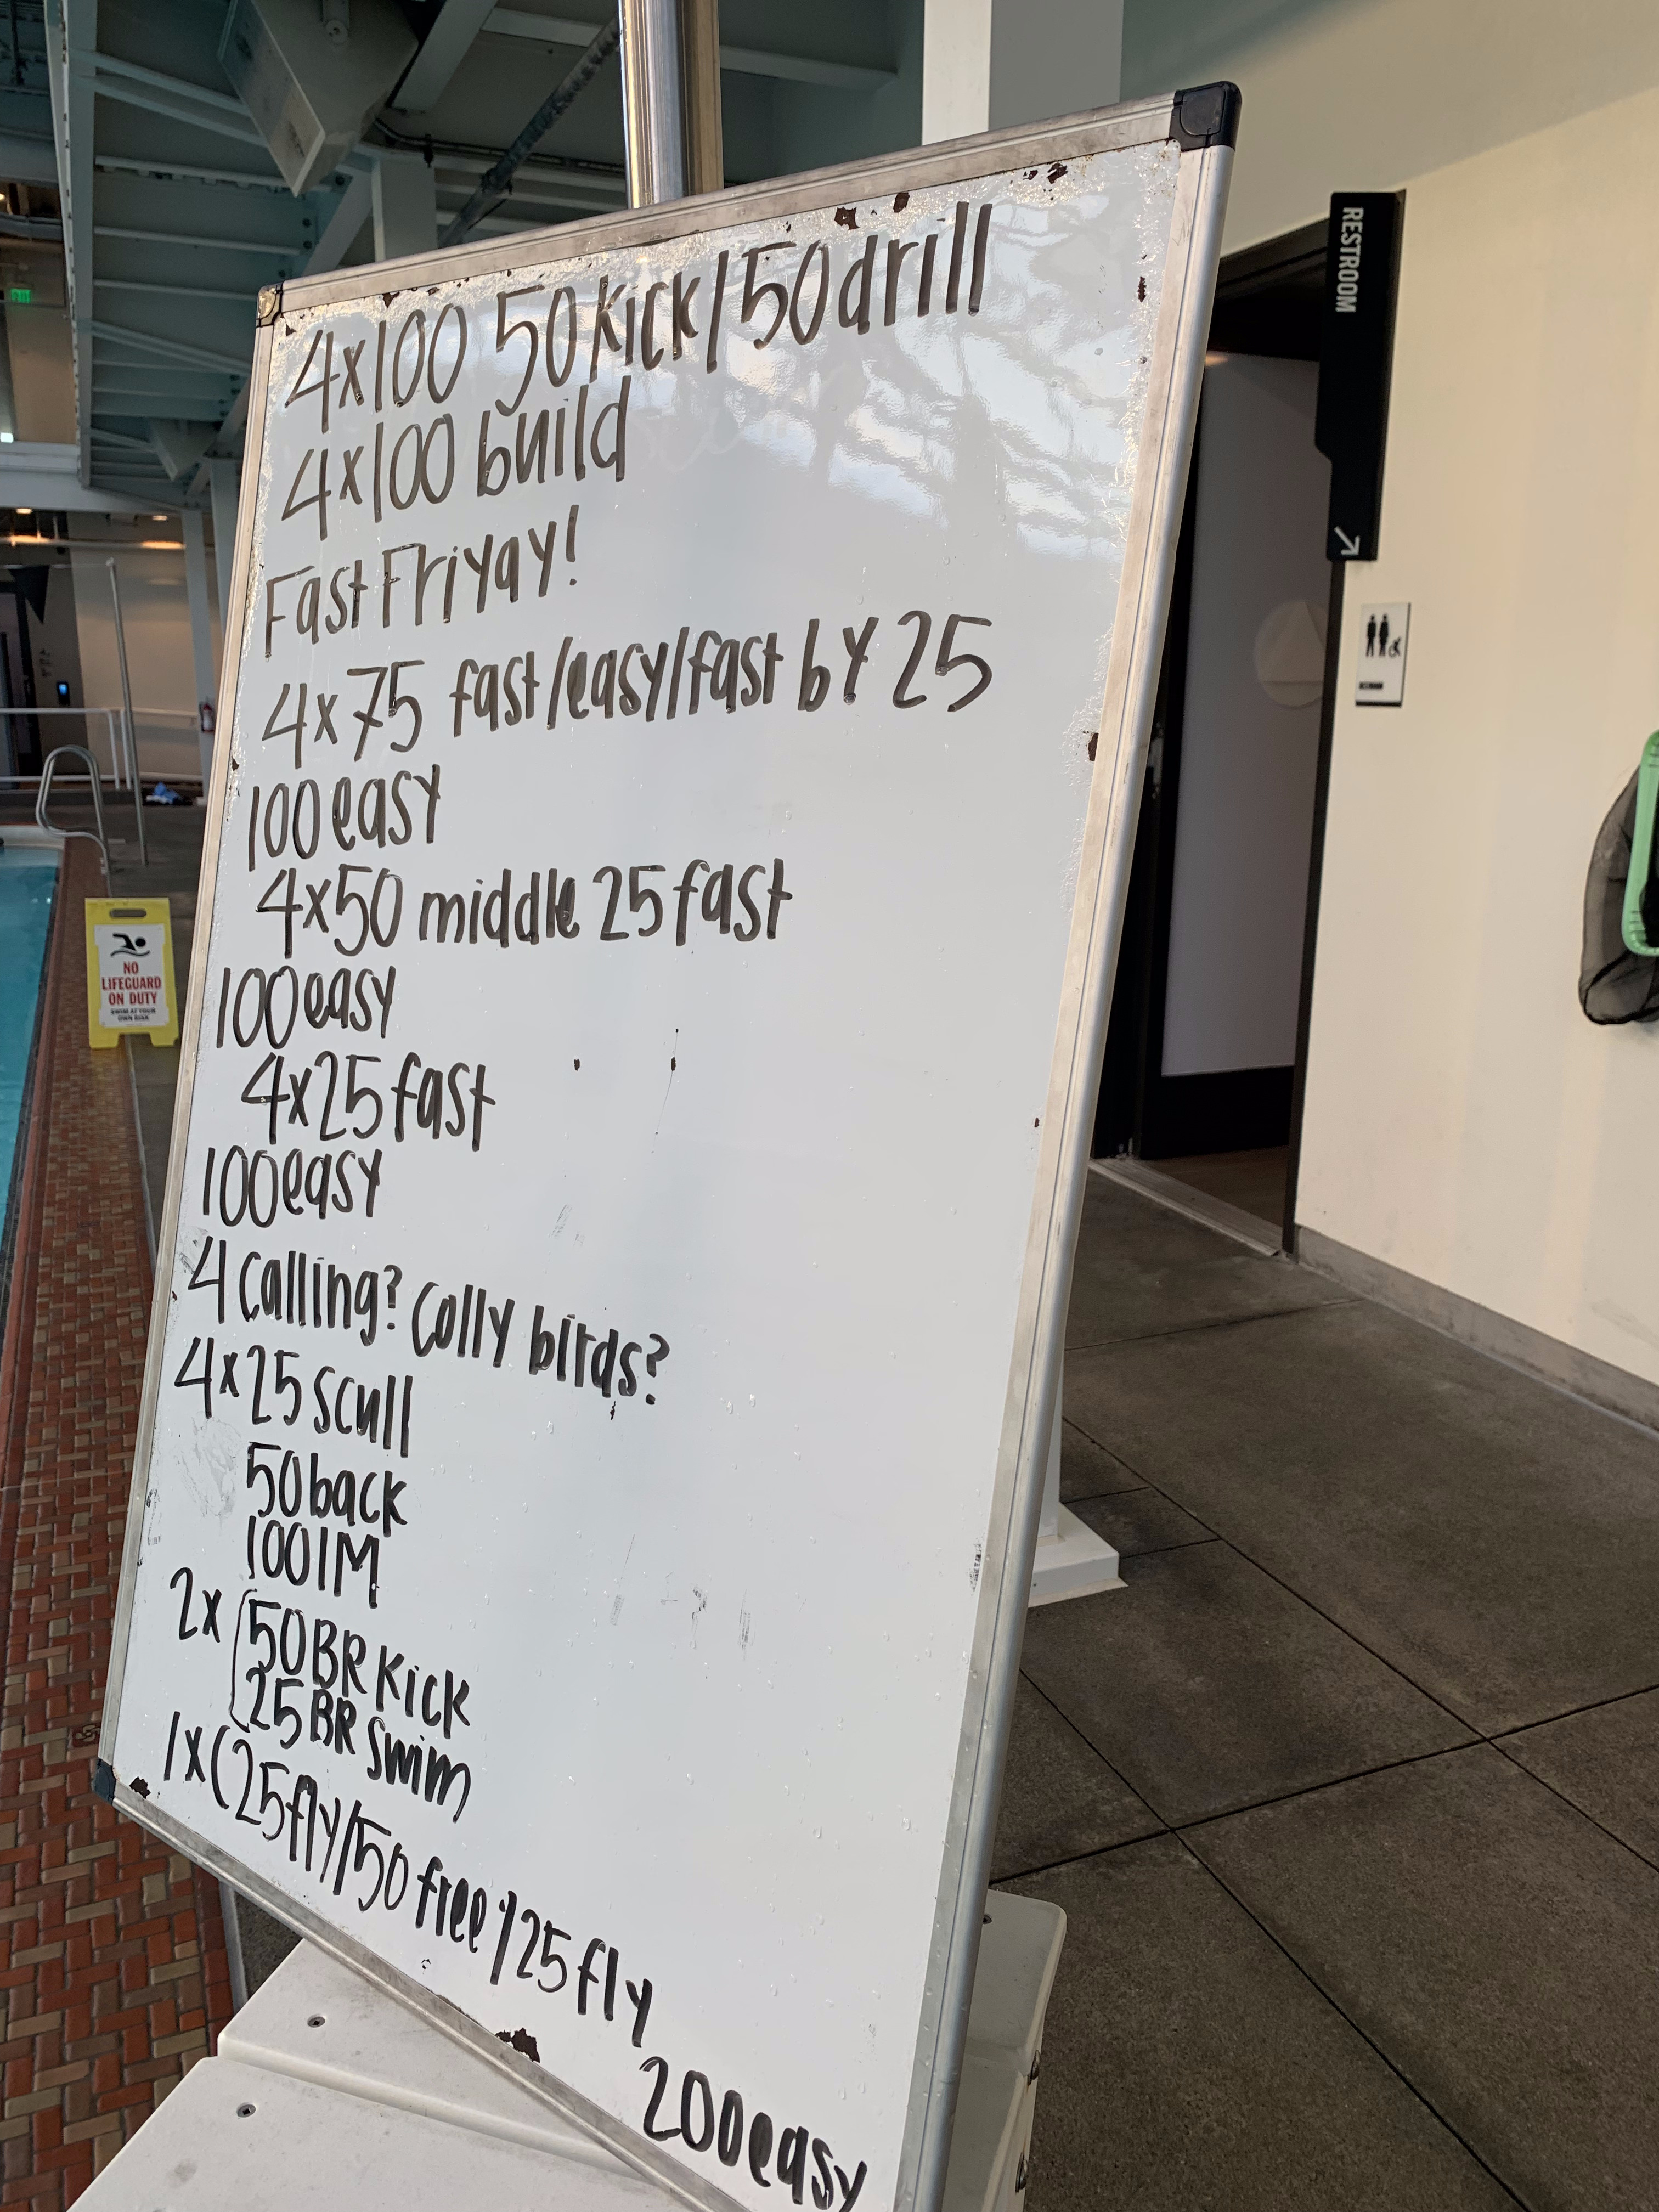 4x100 50 kick/50 drill
4x100 build
Fast Friyay!
4x75 fast/easy/fast by 25
100 easy
4x50 middle 25 fast
100 easy
4x25 fast
100 easy
4 Calling? Colly birds?
4x25 scull
50 back
100 IM
2x 50 BR Kick
25 BR Swim
1x (25 fly/50 free/25 fly
200 easy
RESTROOM
NO
LIFEGUARD
ON DUTY
SWIM AT YOUR
OWN RISK